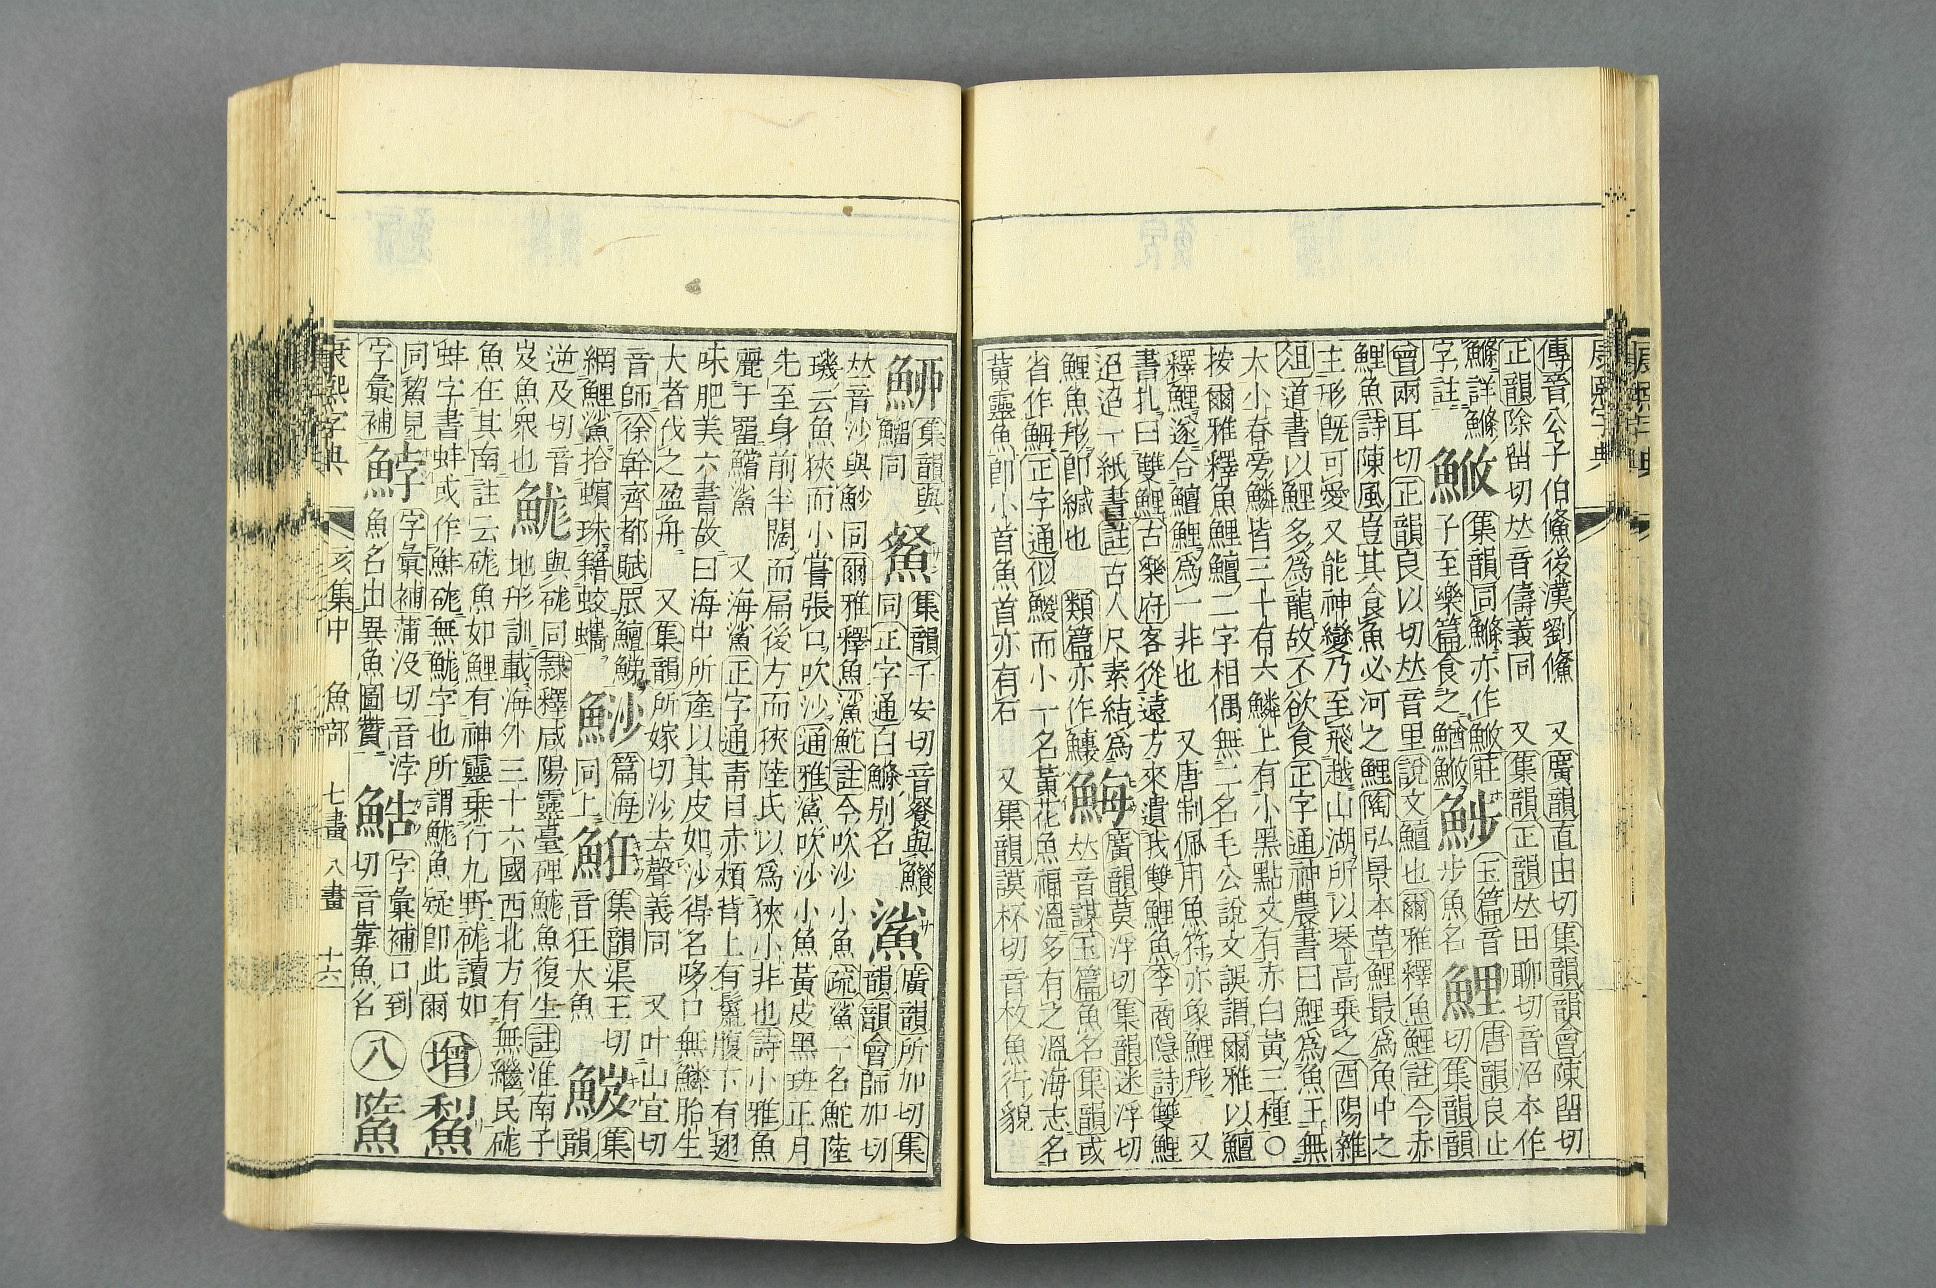 康熙字典
傳晉公子伯鯈後漢劉鯈 又廣韻直由切集韻韻會陳留切
正韻除留切𠀤音儔義同 又集韻正韻𠀤田聊切音迢本作
鰷詳鰷
字註
鮻
集韻同鰷亦作𩷏莊
子至樂篇食之鰌鮻
𩶉
玉篇音
步魚名
鯉
唐韻良止
切集韻韻
會兩耳切正韻良以切𠀤音里說文鱣也爾雅釋魚鯉註今赤
鯉魚詩陳風豈其食魚必河之鯉陶弘景本草鯉最爲魚中之
主形旣可愛又能神變乃至飛越山湖所以琴高乘之酉陽雜
俎道書以鯉多爲龍故不欲食正字通神農書曰鯉爲魚王無
大小脊旁鱗皆三十有六鱗上有小黑點文有赤白黃三種〇
按爾雅釋魚鯉鱣二字相偶無二名毛公說文誤謂爾雅以鱣
釋鯉遂合鱣鯉爲一非也 又唐制佩用魚符亦象鯉形 又
書札曰雙鯉古樂府客從遠方來遺我雙鯉魚李商隱詩雙鯉
迢迢一紙書註古人尺素結爲
鯉魚形卽緘也 類篇亦作鱳
䱕
廣韻莫浮切集韻迷浮切
𠀤音謀玉篇魚名集韻或
省作鮙正字通似鰀而小一名黃花魚福溫多有之溫海志名
黃靈魚卽小首魚首亦有石 又集韻謨杯切音枚魚行貌
鰤
集韻與
鰡同
䱑
集韻千安切音餐與䱹
同正字通白鰷別名
鯊
廣韻所加切集
韻韻會師加切
𠀤音沙與魦同爾雅釋魚鯊鮀註今吹沙小魚疏鯊一名鮀陸
璣云魚狹而小嘗張口吹沙通雅鯊吹沙小魚黃皮黑斑正月
先至身前半闊而扁後方而狹陸氏以爲狹小非也詩小雅魚
麗于罶鱨鯊 又海鯊正字通靑目赤頰背上有鬣腹下有翅
味肥美六書故曰海中所產以其皮如沙得名哆口無鱗胎生
大者伐之盈舟 又集韻所嫁切沙去聲義同 又叶山宜切
音師徐幹齊都賦罛鱣鯷
網鯉鯊拾蠙珠籍蛟蠵
魦
篇海
同上
䱃
集韻渠王切
音狂大魚
鯪
集
韻
逆及切音
岌魚衆也
䱀
與䖫同隸釋咸陽靈臺碑䱀魚復生註淮南子
地形訓載海外三十六國西北方有無繼民䖫
魚在其南註云䖫魚如鯉有神靈乘行九野䖫讀如
蚌字書蚌或作鮏䖫無䱀字也所謂䱀魚疑卽此爾
增
𩹷
同𩹷見
字彙補
䱁
字彙補蒲沒切音浡
魚名出異魚圖贊
鯌
字彙補口到
切音靠魚名
八
䲀
康熙字典 亥集中 魚部 七畫 八畫 十六